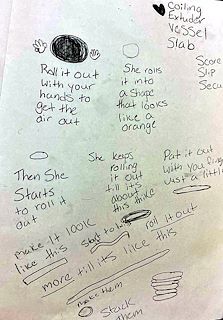 Coiling
Extuder
Vessel
Slab
Score
Slip
Secu
Roll it out
with your
hands to
get the
air out
She rolls
it into
a Shape
that looks
like a
orange
Then She
Starts
to roll it
out
She keeps
rolling
it out
till it's
about
this thike
Pat it out
with you fing
Just a little
make It look
like this
Start to
roll it out
more till its like this
make them
Stack
Them